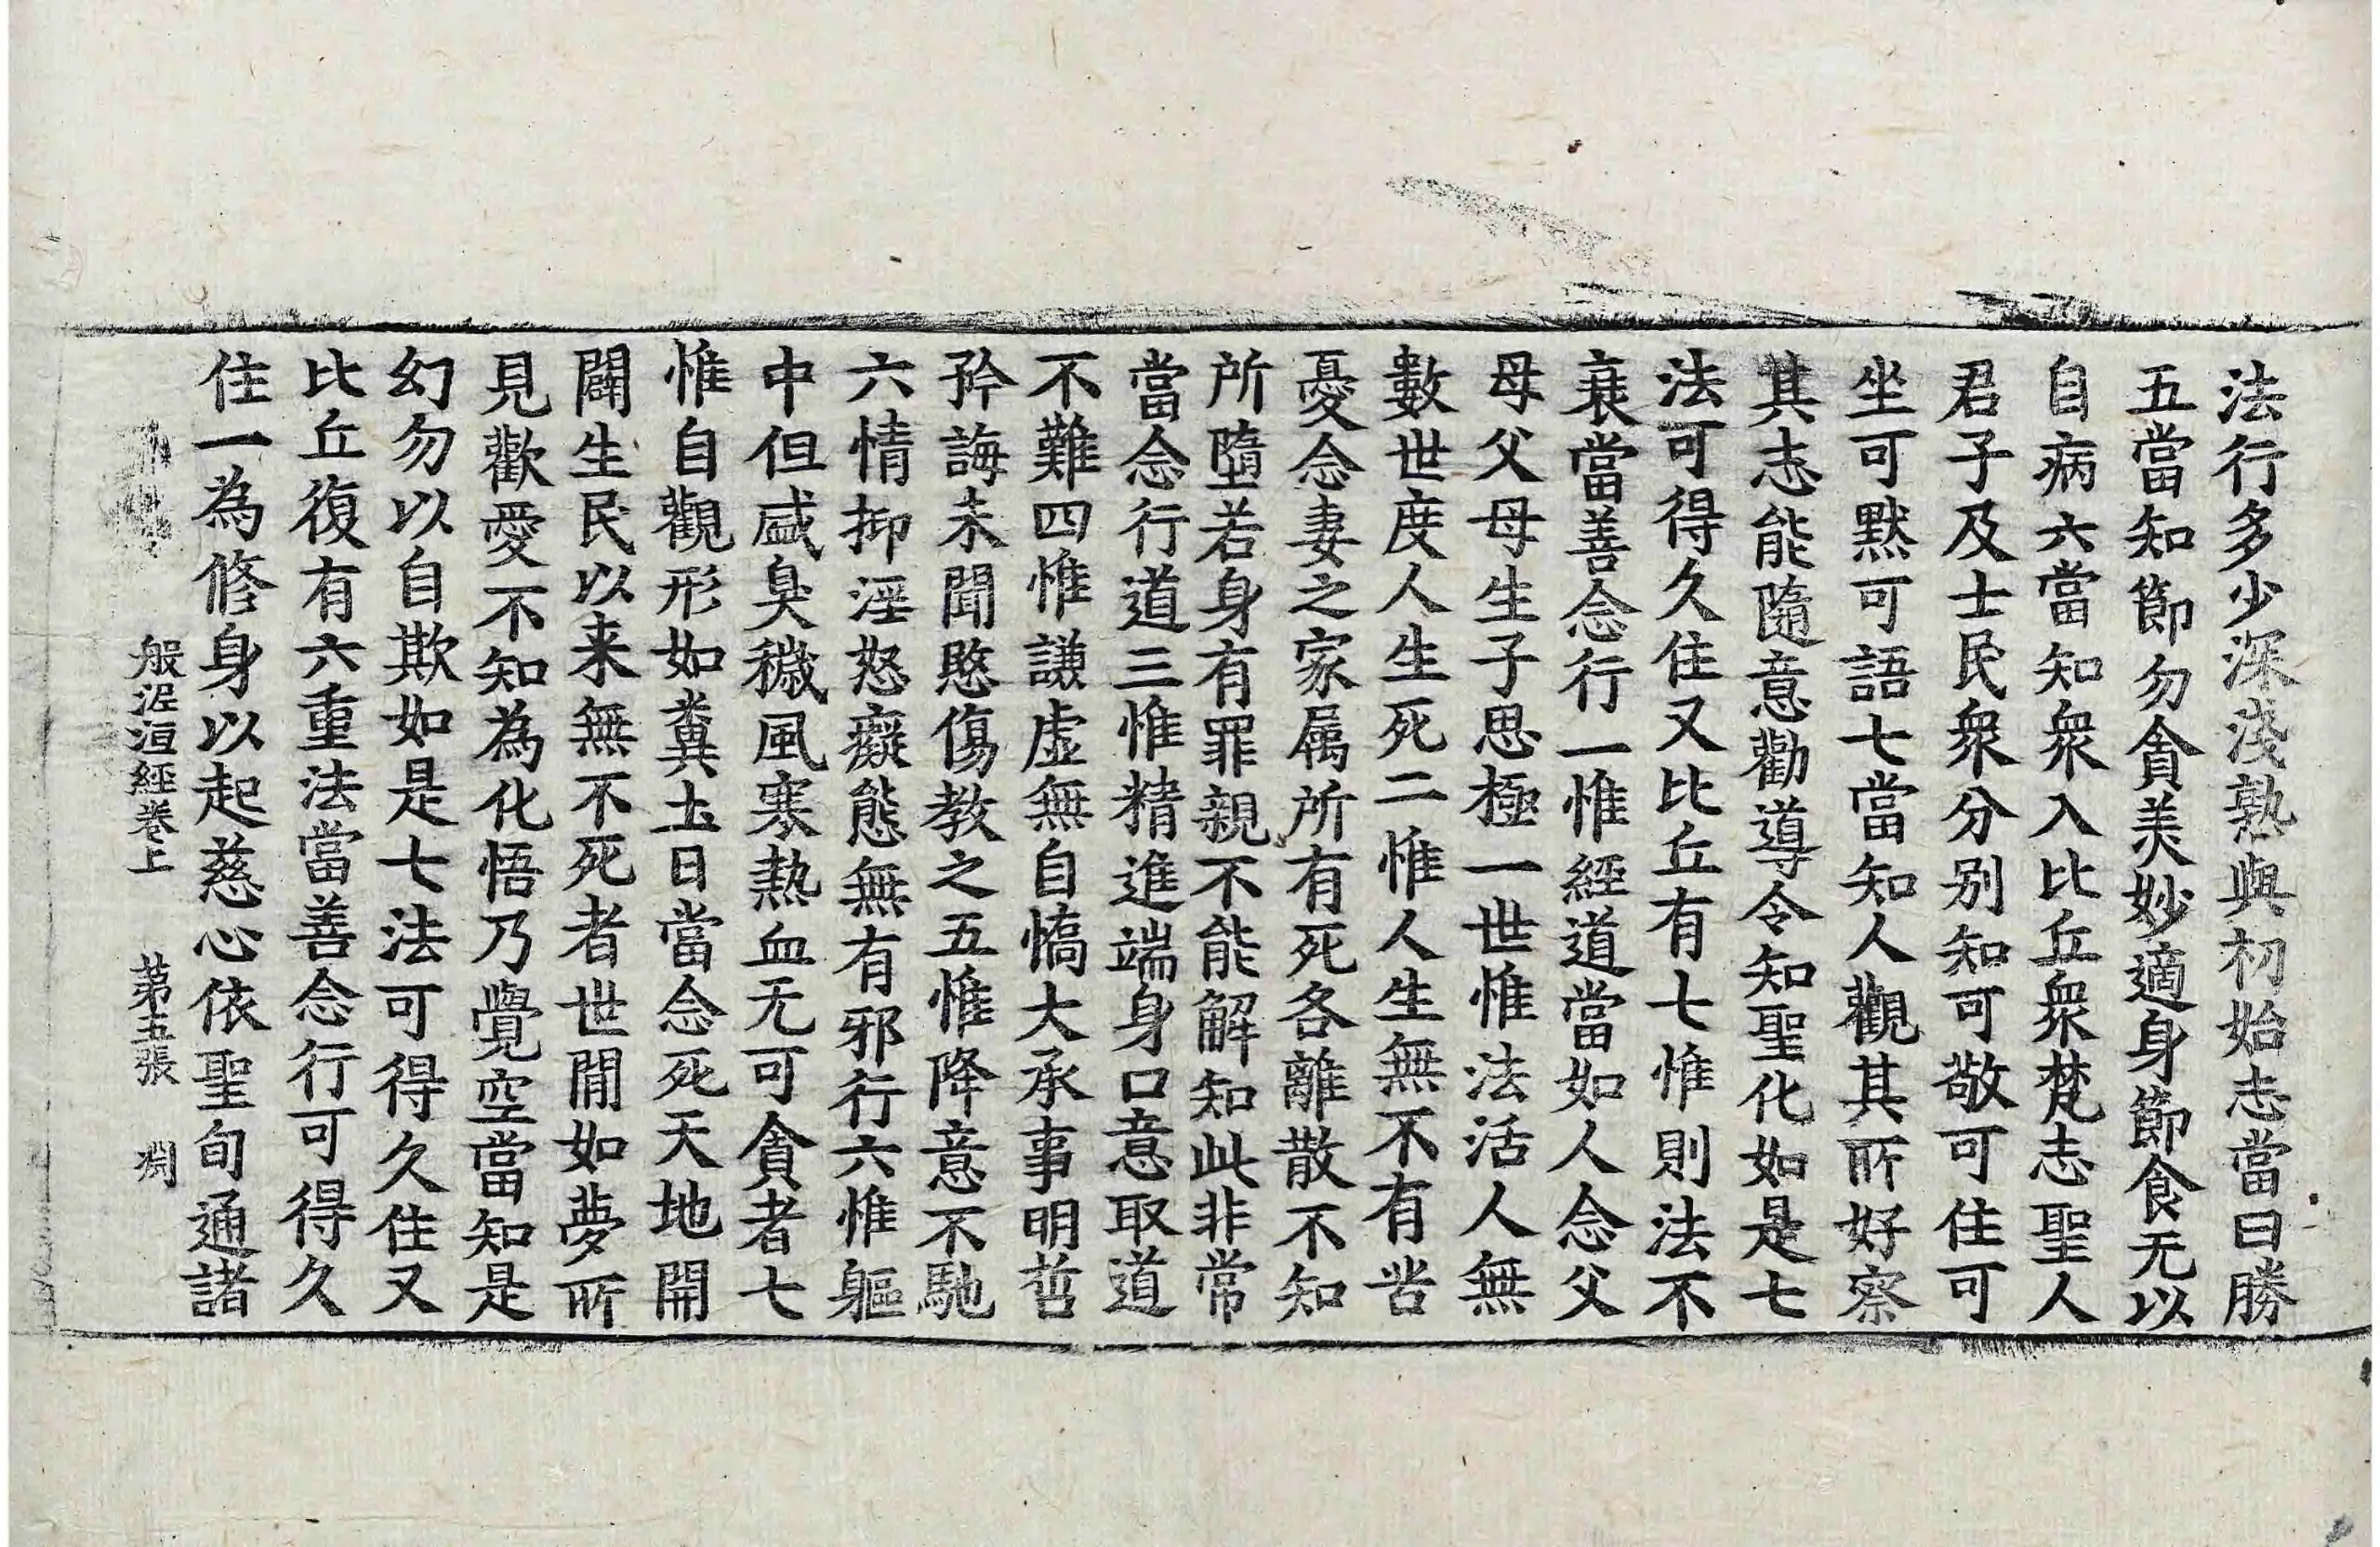 法行多少深淺熟與初始志當日勝
五當知節勿貪美妙適身節食无以
自病六當知衆入比丘衆梵志聖人
君子及士民衆分別知可敬可住可
坐可黙可語七當知人觀其所好察
其志能隨意勸導令知聖化如是七
法可得久住又比丘有七惟則法不
衰當善念行一惟經道當如人念父
母父母生子思極一世惟法活人無
數世度人生死二惟人生無不有苦
憂念妻之家属所有死各離散不知
所墮若身有罪親不能解知此非常
當念行道三惟精進端身口意取道
不難四惟謙虚無自憍大承事明哲
矜誨未聞愍傷教之五惟降意不馳
六情抑淫怒癡態無有邪行六惟軀
中但盛臭穢風寒熱血无可貪者七
惟自觀形如糞土日當念死天地開
闢生民以来無不死者世間如夢所
見歡愛不知為化悟乃覺空當知是
幻勿以自欺如是七法可得久住又
比丘復有六重法當善念行可得久
住一為修身以起慈心依聖旬通諸
般泥洹經卷上 第五張 淵